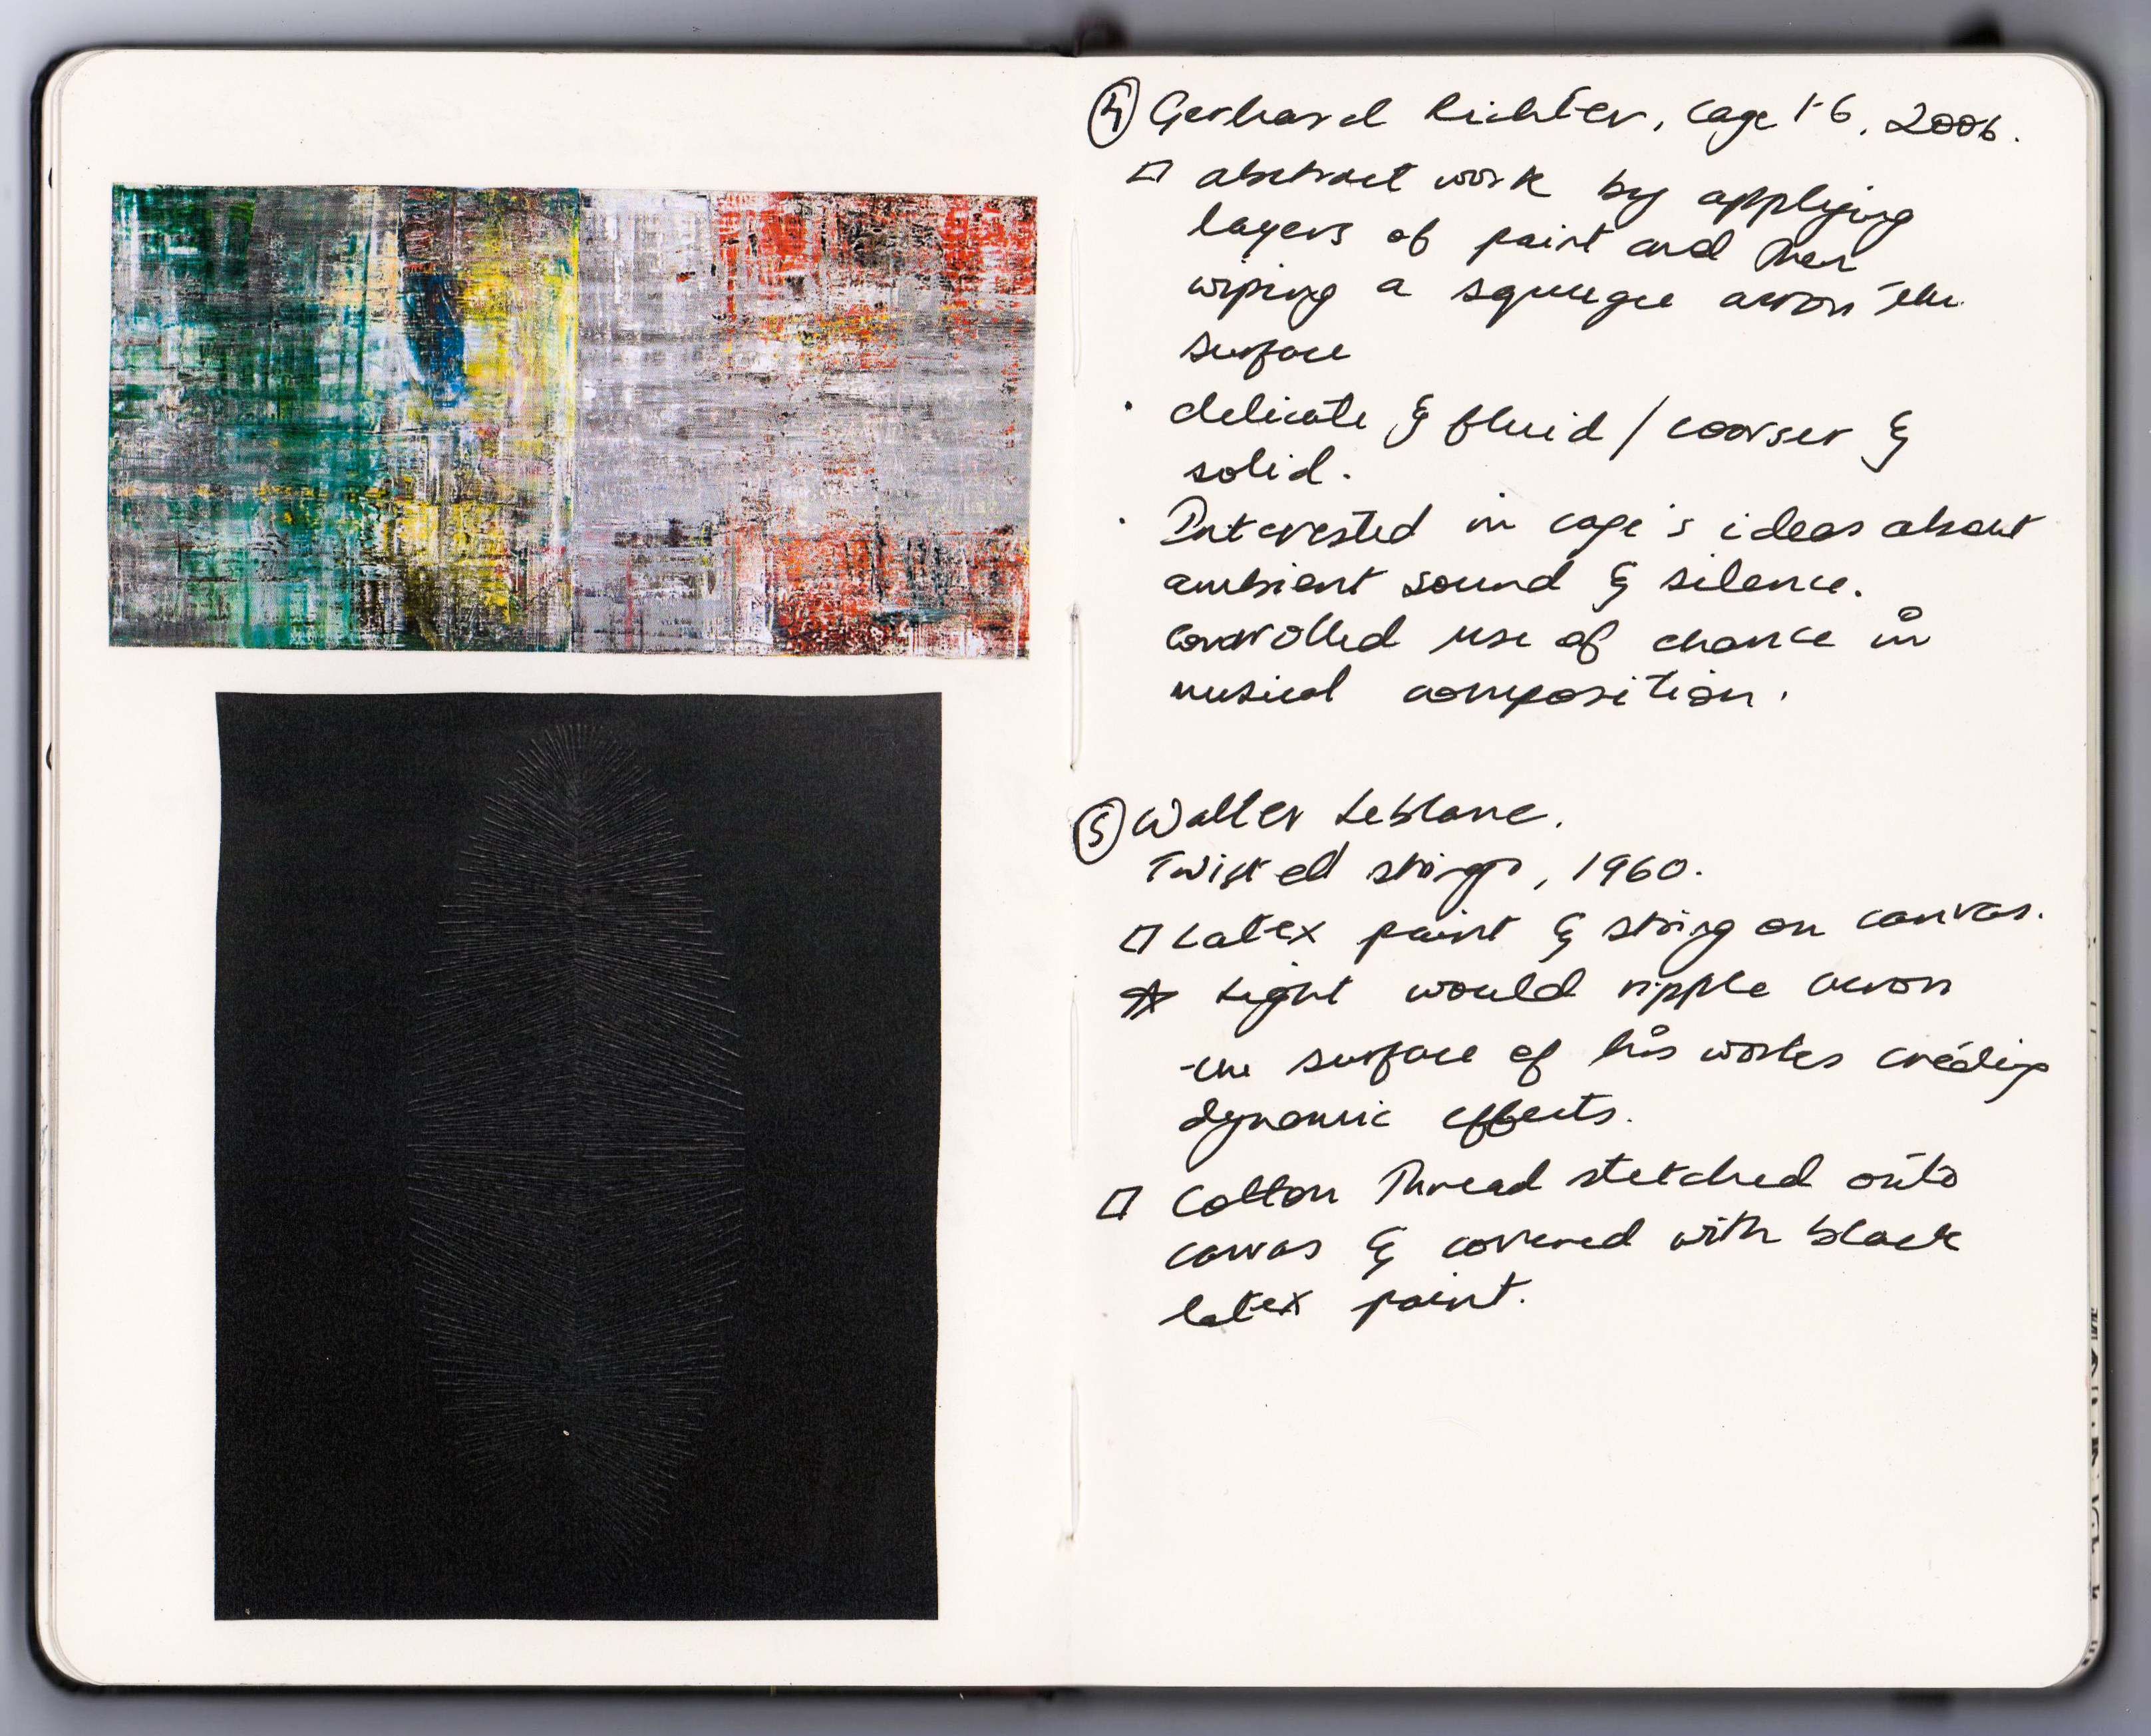 ④ Gerhard Richter, Cage 1-6, 2006.
□ abstract work by applying
layers of paint and then
wiping a squeegee across the
surface
· delicate & fluid / coarser &
solid.
· Interested in cage's ideas about
ambient sound & silence.
controlled use of chance in
musical composition.
⑤ Walter Leblanc.
Twisted strings, 1960.
□ Latex paint & string on canvas.
☆ Light would ripple across
the surface of his works creating
dynamic effects.
□ Cotton Thread stretched onto
canvas & covered with black
latex paint.